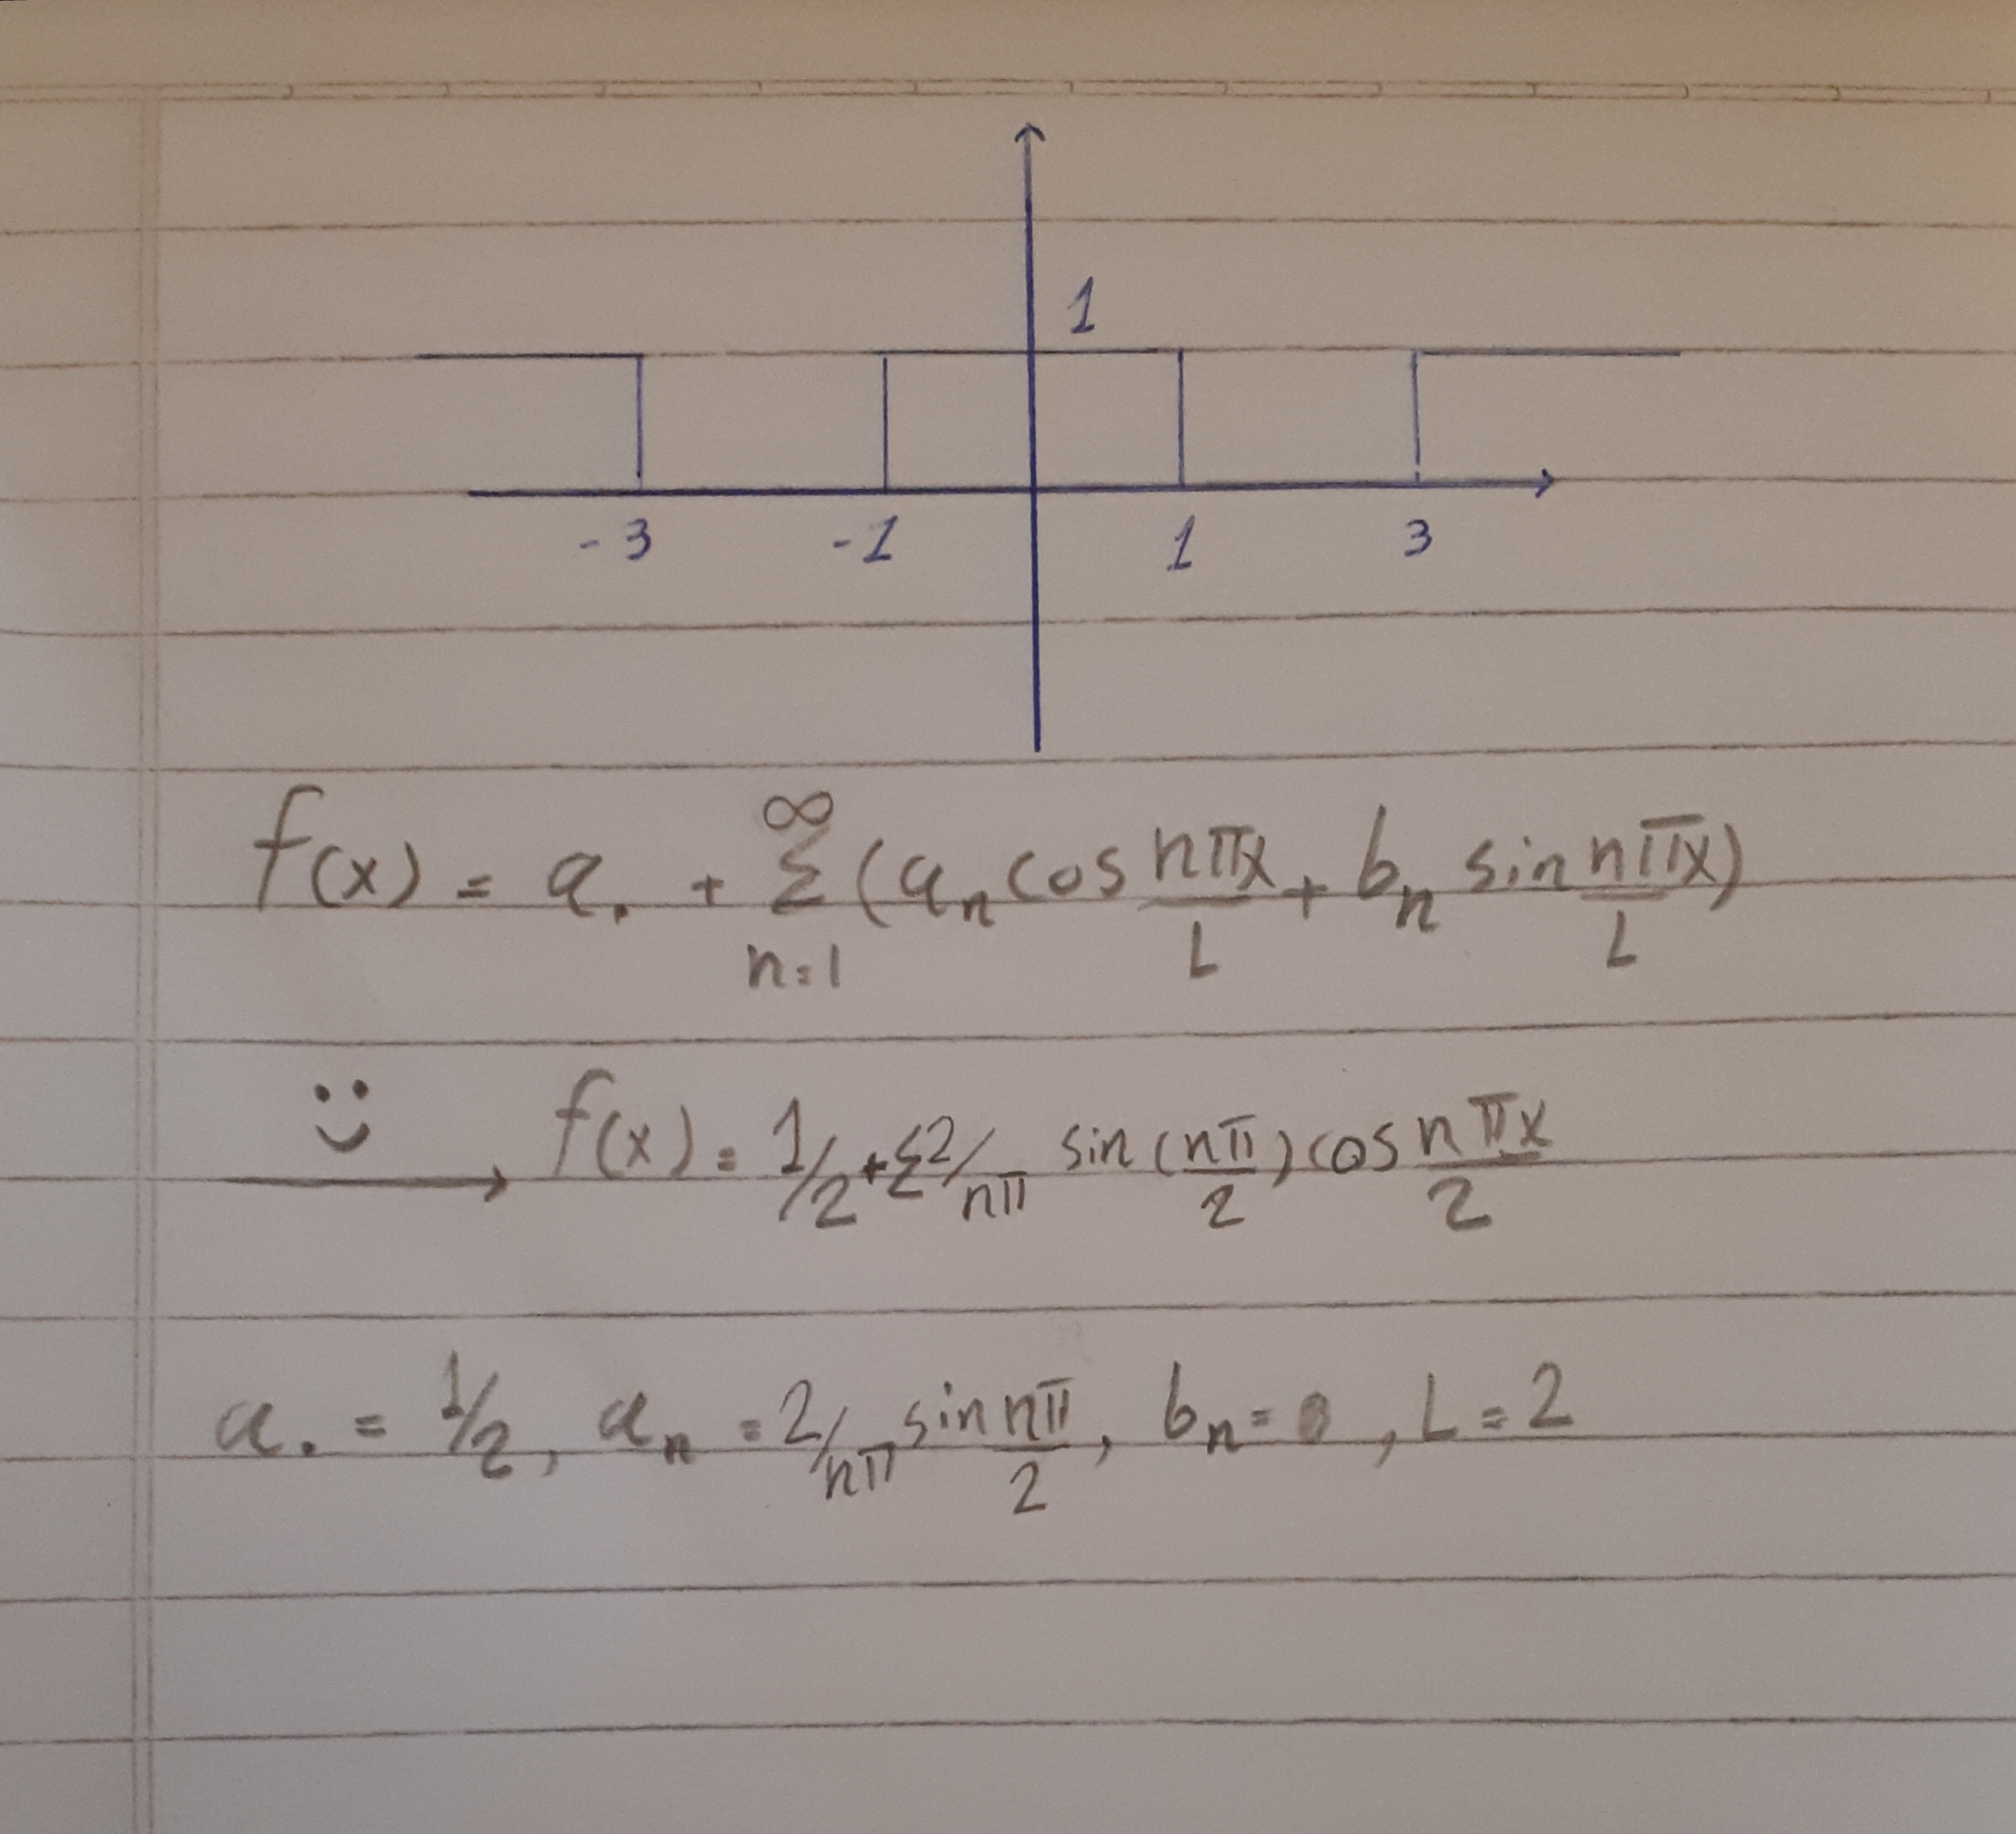 1
-3 -1 1 3
f(x) = a. + ∞ Σ n=1 (a_n cos nπx/L + b_n sin nπx/L)
f(x) = 1/2 + Σ 2/nπ sin(nπ/2) cos nπx/2
a. = 1/2, a_n = 2/nπ sin nπ/2, b_n = 0, L = 2